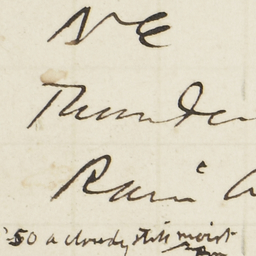 NE
Thunder
Rain
50 a cloudy still moist